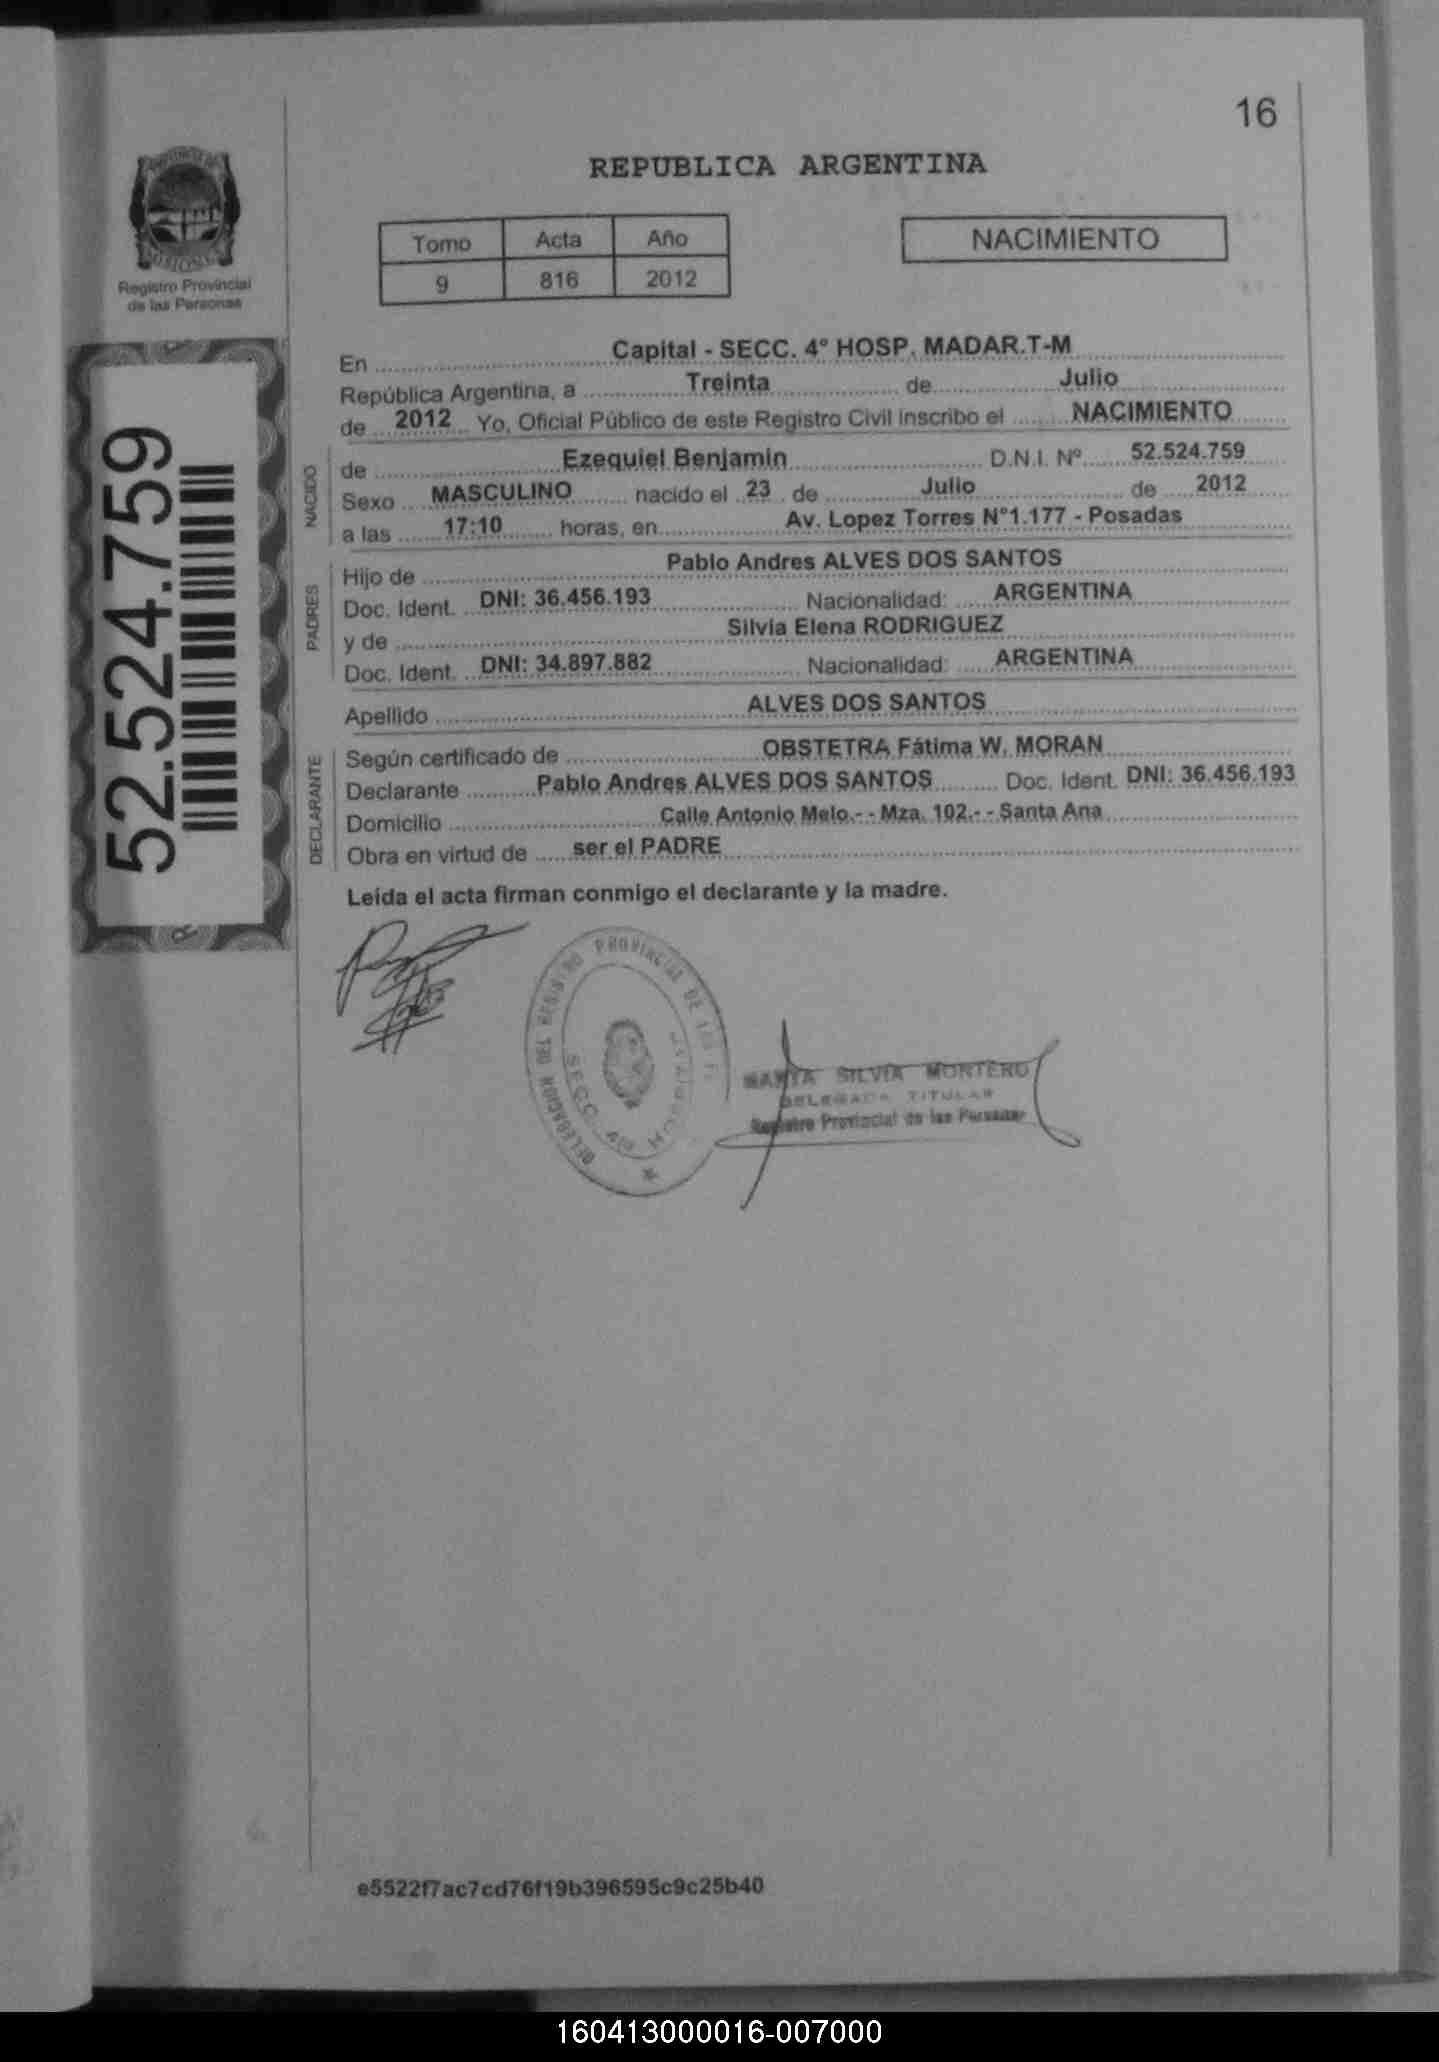 16
REPUBLICA ARGENTINA
Tomo Acta Año
9 816 2012
NACIMIENTO
PROVINCIA DE
MISIONES
Registro Provincial
de las Personas
52.524.759
En Capital - SECC. 4° HOSP. MADAR.T-M
República Argentina, a Treinta de Julio
de 2012 Yo, Oficial Público de este Registro Civil inscribo el NACIMIENTO
NACIDO
de Ezequiel Benjamin D.N.I. Nº 52.524.759
Sexo MASCULINO nacido el 23 de Julio de 2012
a las 17:10 horas, en Av. Lopez Torres N°1.177 - Posadas
PADRES
Hijo de Pablo Andres ALVES DOS SANTOS
Doc. Ident. DNI: 36.456.193 Nacionalidad: ARGENTINA
y de Silvia Elena RODRIGUEZ
Doc. Ident. DNI: 34.897.882 Nacionalidad: ARGENTINA
Apellido ALVES DOS SANTOS
DECLARANTE
Según certificado de OBSTETRA Fátima W. MORAN
Declarante Pablo Andres ALVES DOS SANTOS Doc. Ident. DNI: 36.456.193
Domicilio Calle Antonio Melo.- - Mza. 102.- - Santa Ana
Obra en virtud de ser el PADRE
Leída el acta firman conmigo el declarante y la madre.
DELEGACION DEL REGISTRO PROVINCIAL DE LAS
SECC. 4ª
MARTA SILVIA MONTERO
DELEGADA TITULAR
Registro Provincial de las Personas
e5522f7ac7cd76f19b396595c9c25b40
160413000016-007000